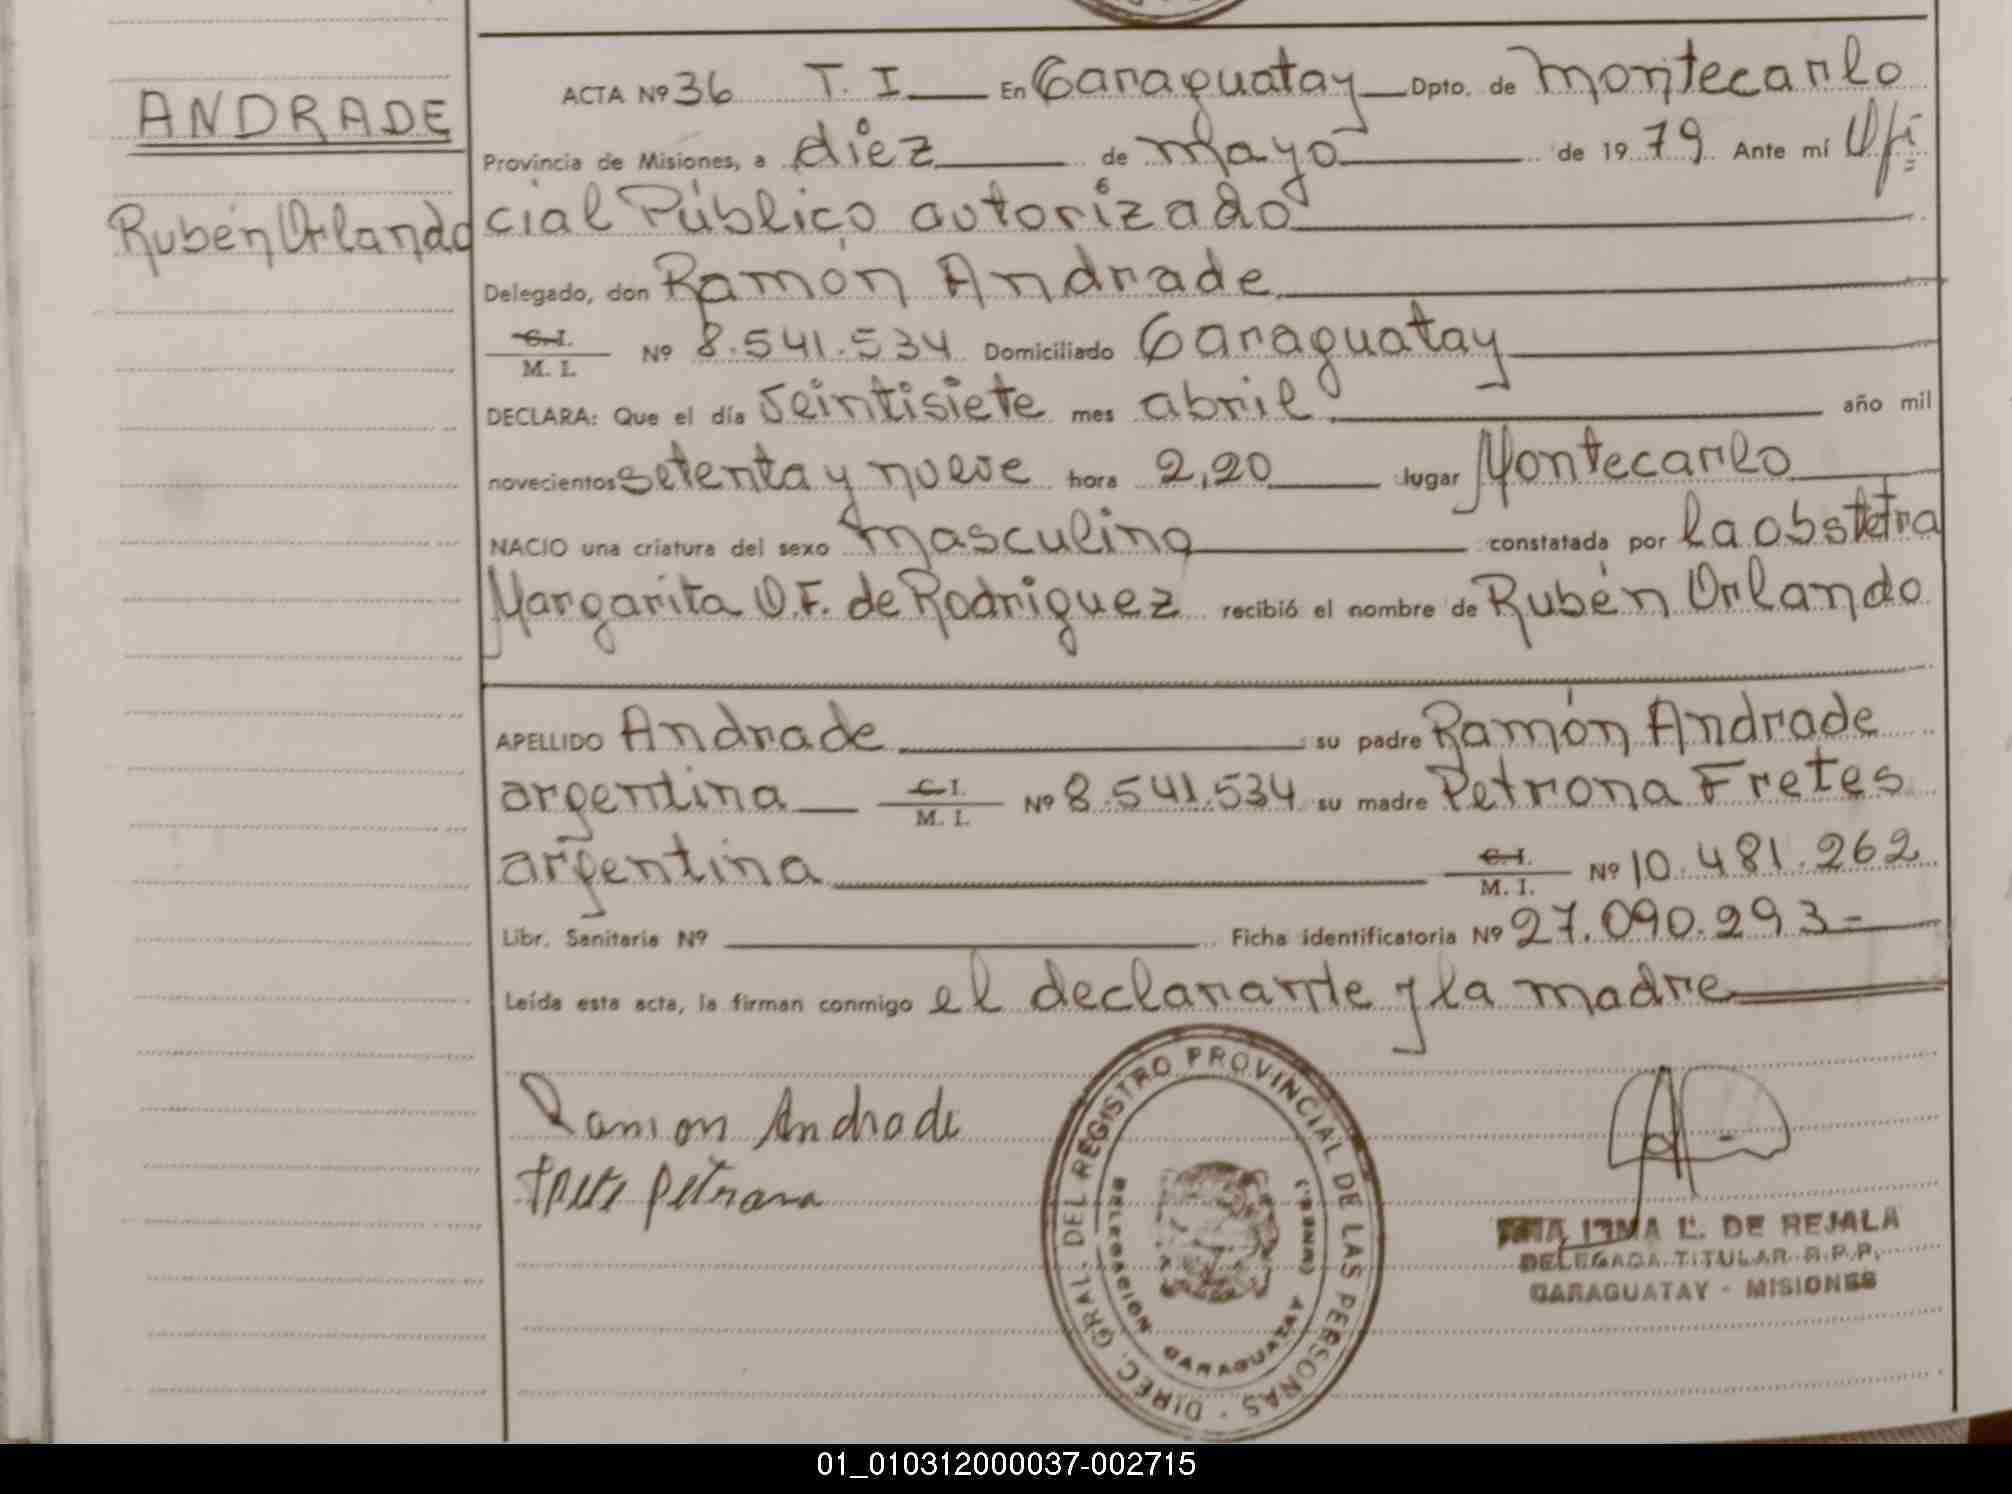 ANDRADE
Rubén Orlando
ACTA Nº 36 T. I. En Caraguatay Dpto. de Montecarlo
Provincia de Misiones, a diez de Mayo de 1979 Ante mí Ofi=
cial Público autorizado
Delegado, don Ramón Andrade
C.I.
M. I. Nº 8.541.534 Domiciliado Caraguatay
DECLARA: Que el día veintisiete mes abril año mil
novecientos setenta y nueve hora 2,20 lugar Montecarlo
NACIO una criatura del sexo masculino constatada por la obstetra
Margarita O.F. de Rodriguez recibió el nombre de Rubén Orlando
APELLIDO Andrade su padre Ramón Andrade
argentina C.I.
M. I. Nº 8.541.534 su madre Petrona Fretes
argentina C.I.
M. I. Nº 10.481.262
Libr. Sanitaria Nº Ficha identificatoria Nº 27.090.293=
Leída esta acta, la firman conmigo el declarante y la madre
Ramon Andrade
Petrona
DIREC. GRAL. DEL REGISTRO PROVINCIAL DE LAS PERSONAS
DELEGACION CARAGUATAY
IRMA L. DE REJALA
DELEGADA TITULAR R.P.P.
CARAGUATAY - MISIONES
01_010312000037-002715